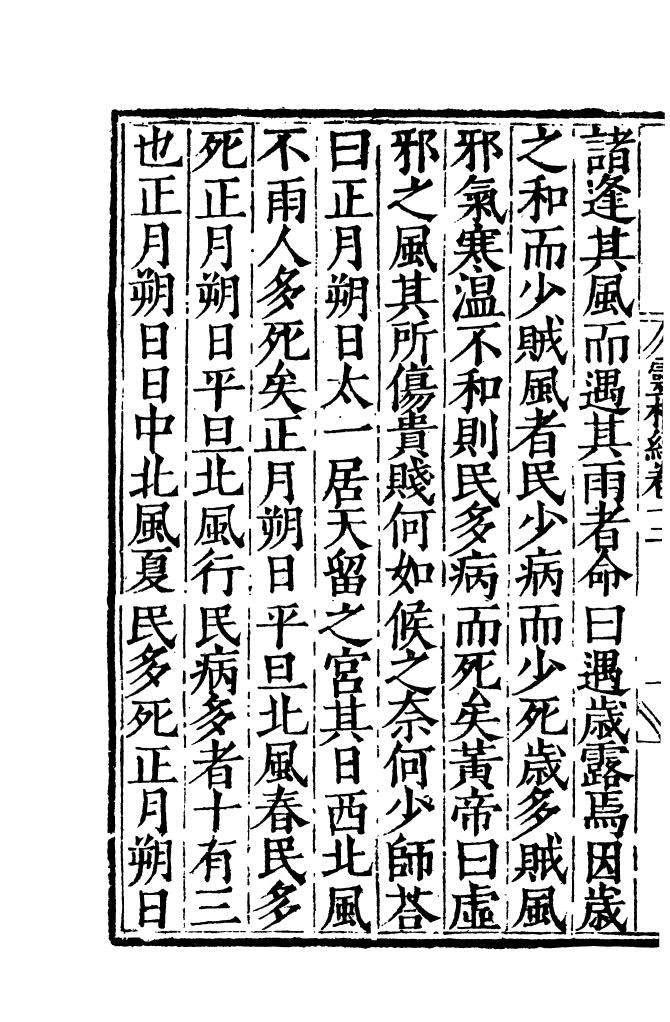 諸逢其風而遇其雨者命曰遇歲露焉因歲
之和而少賊風者民少病而少死歲多賊風
邪氣寒温不和則民多病而死矣黃帝曰虛
邪之風其所傷貴賤何如候之奈何少師荅
曰正月朔日太一居天留之宮其日西北風
不雨人多死矣正月朔日平旦北風春民多
死正月朔日平旦北風行民病多者十有三
也正月朔日日中北風夏民多死正月朔日